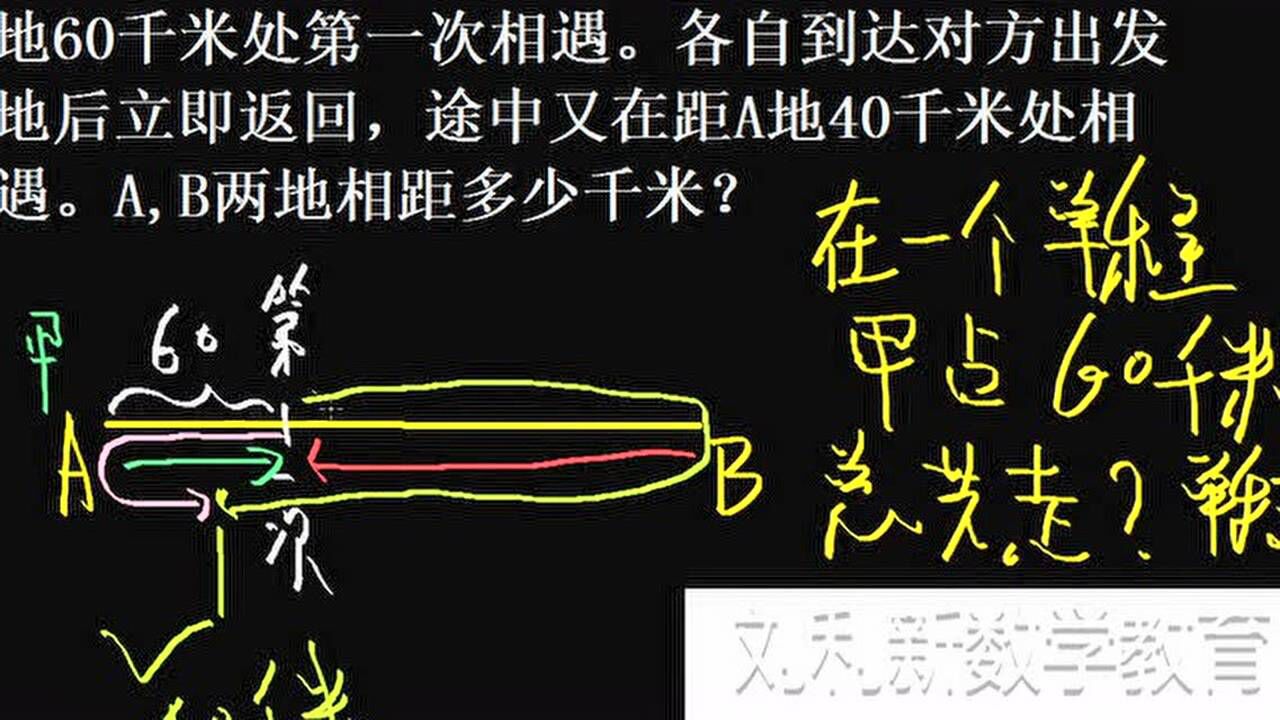 地60千米处第一次相遇。各自到达对方出发
地后立即返回，途中又在距A地40千米处相
遇。A,B两地相距多少千米？
在一个单程
甲占60千米
总共走？单
甲
60
第一次
A
B
刘利新数学教育